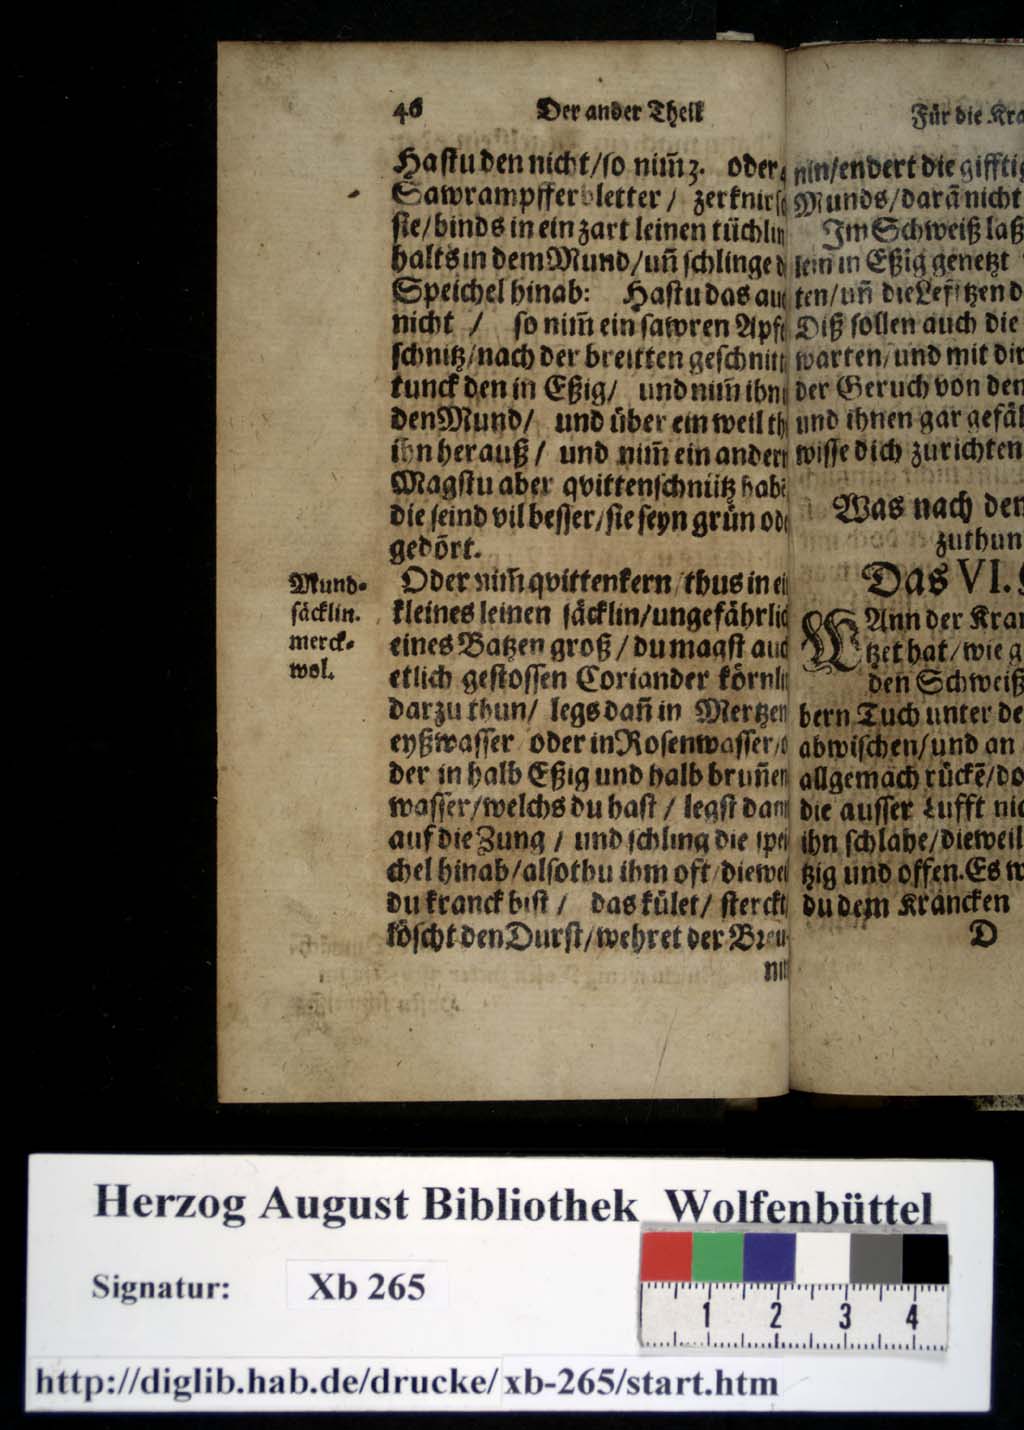 46 Der ander Theil
Hastu den nicht/so nim̃ 3. oder 4
Sawrampffer bletter/ zerknirsc
sie/binds in ein zart leinen tüchlin
halts in dem Mund/uñ schlinge d
Speichel hinab: Hastu das auc
nicht / so nim̃ ein sawren Apff
schnitz/nach der breitten geschnitt
tunck den in Eßig/ und nim̃ ihn
den Mund/ und über ein weil th
ihn herauß/ und nim̃ ein andern
Magstu aber qvittenschnütz habe
die seind vil besser/sie seyn grün ode
gedört.
Mund-
säcklin.
merck-
wol.
Oder nim̃ qvittenkern/thus in ei
kleines leinen säcklin/ungefährlic
eines Batzen groß/du magst auc
etlich gestossen Coriander körnli
darzu thun/ legs dañ in Mertzen
eyßwasser oder in Rosenwasser/o
der in halb Eßig und halb bruñen
wasser/welchs du hast/ legst dann
auf die Zung / und schling die spei
chel hinab/also thu ihm oft/diewei
du kranck bist/ das kület/ sterckt
löscht den Durst/wehret der Breu
nin
Für die Kra
nin/endert die gifftig
Munds/darã nicht
Im Schweiß laß
lein in Eßig genetzt
ten/uñ die Lefftzen d
Diß sollen auch die
warten/und mit dir
der Geruch von den
und ihnen gar gefäl
wisse dich zurichten
Was nach den
zuthun
Das VI.
WAnn der Kran
tzet hat/wie g
den Schweiß
bern Tuch unter de
abwischen/und an
allgemach rückẽ/do
die ausser Lufft nic
ihn schlahe/dieweil
tzig und offen. Es w
du dem Krancken
D
Herzog August Bibliothek Wolfenbüttel
Signatur: Xb 265
1 2 3 4
http://diglib.hab.de/drucke/xb-265/start.htm